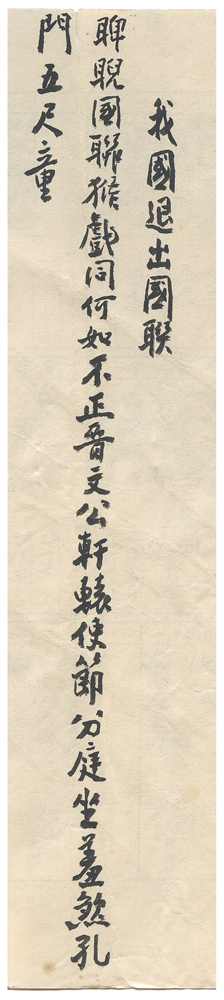 我國退出國聯
睥睨國聯猴戲同何如不正晉文公軒轅使節分庭坐羞煞孔
門五尺童